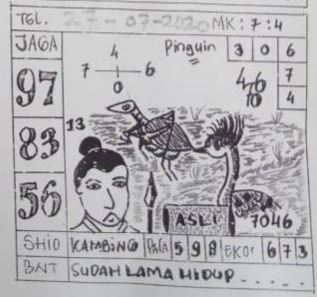 TGL. 27-07-2020 MK: 7:4
JAGA
97
83
56
4
7 6
0
Pinguin
3 0 6
7
4
46
70
13
ASLI
7046
SHIO KAMBING PALA 5 9 8 EKOR 6 7 3
BNT SUDAH LAMA HIDUP - - - - -